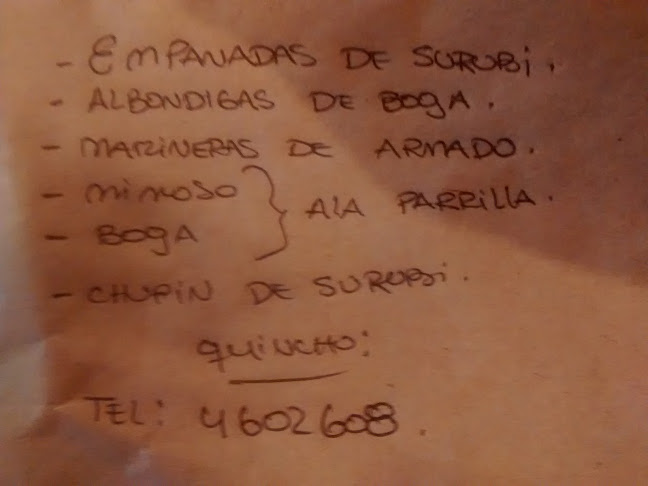 - EMPANADAS DE SURUBI.
- ALBONDIGAS DE BOGA.
- MARINERAS DE ARMADO.
- MIMOSO
} ALA PARRILLA.
- BOGA
- CHUPIN DE SURUBI.
QUINCHO:
TEL: 4602608.